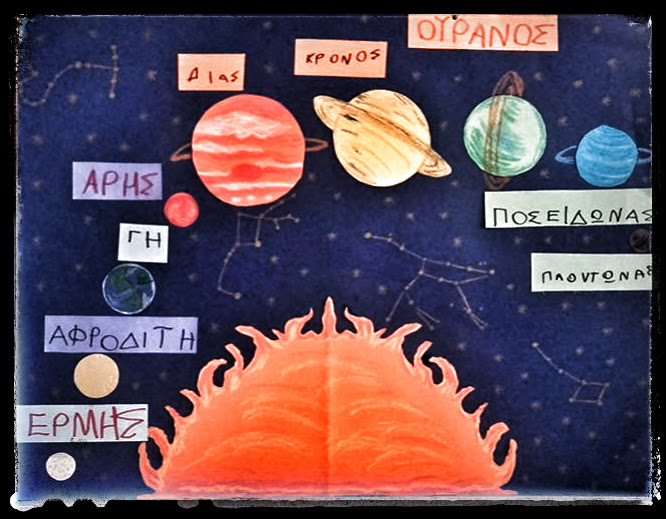 ΟΥΡΑΝΟΣ
ΚΡΟΝΟΣ
Διας
ΑΡΗΣ
ΠΟΣΕΙΔΩΝΑΣ
ΓΗ
ΠΛΟΥΤΩΝΑΣ
ΑΦΡΟΔΙΤΗ
ΕΡΜΗΣ